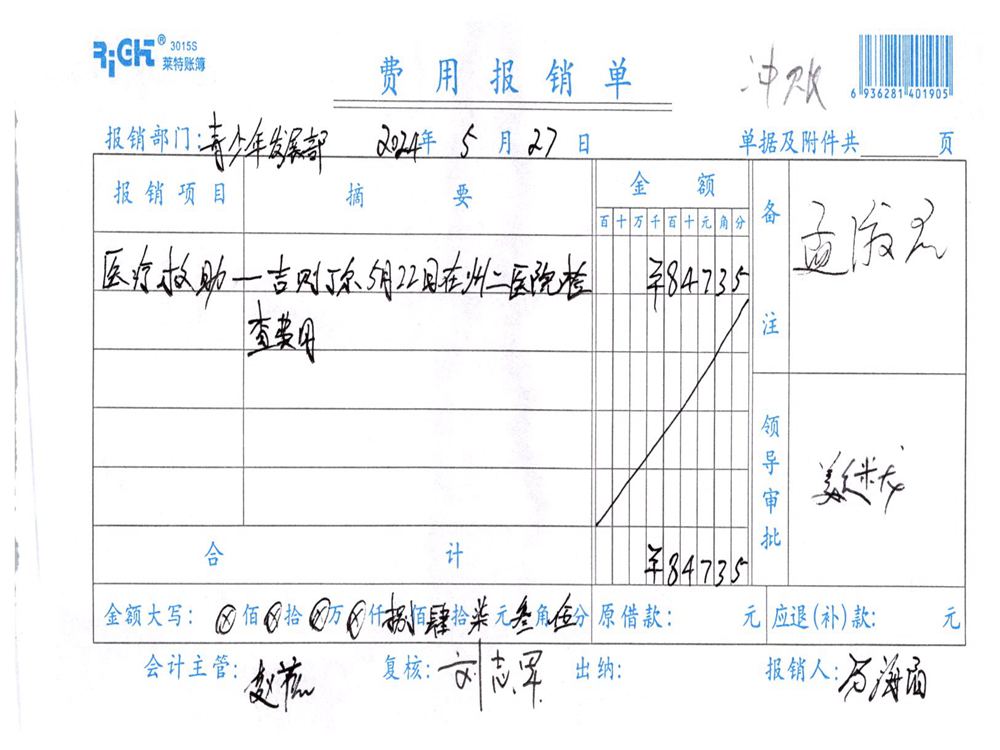 RiCH® 3015S
莱特账簿
费用报销单
冲账
6 936281 401905
报销部门：青少年发展部 2024年 5 月 27 日 单据及附件共 页
报销项目 摘要 金额 备注
百 十 万 千 百 十 元 角 分
医疗救助 一吉则丁尔5月22日在州二医院检 ¥84735
查费用
领导审批
合计 ¥84735
金额大写：ⓧ佰ⓧ拾ⓧ万ⓧ仟捌佰肆拾柒元叁角伍分 原借款： 元 应退(补)款： 元
会计主管： 复核：刘志军 出纳： 报销人：